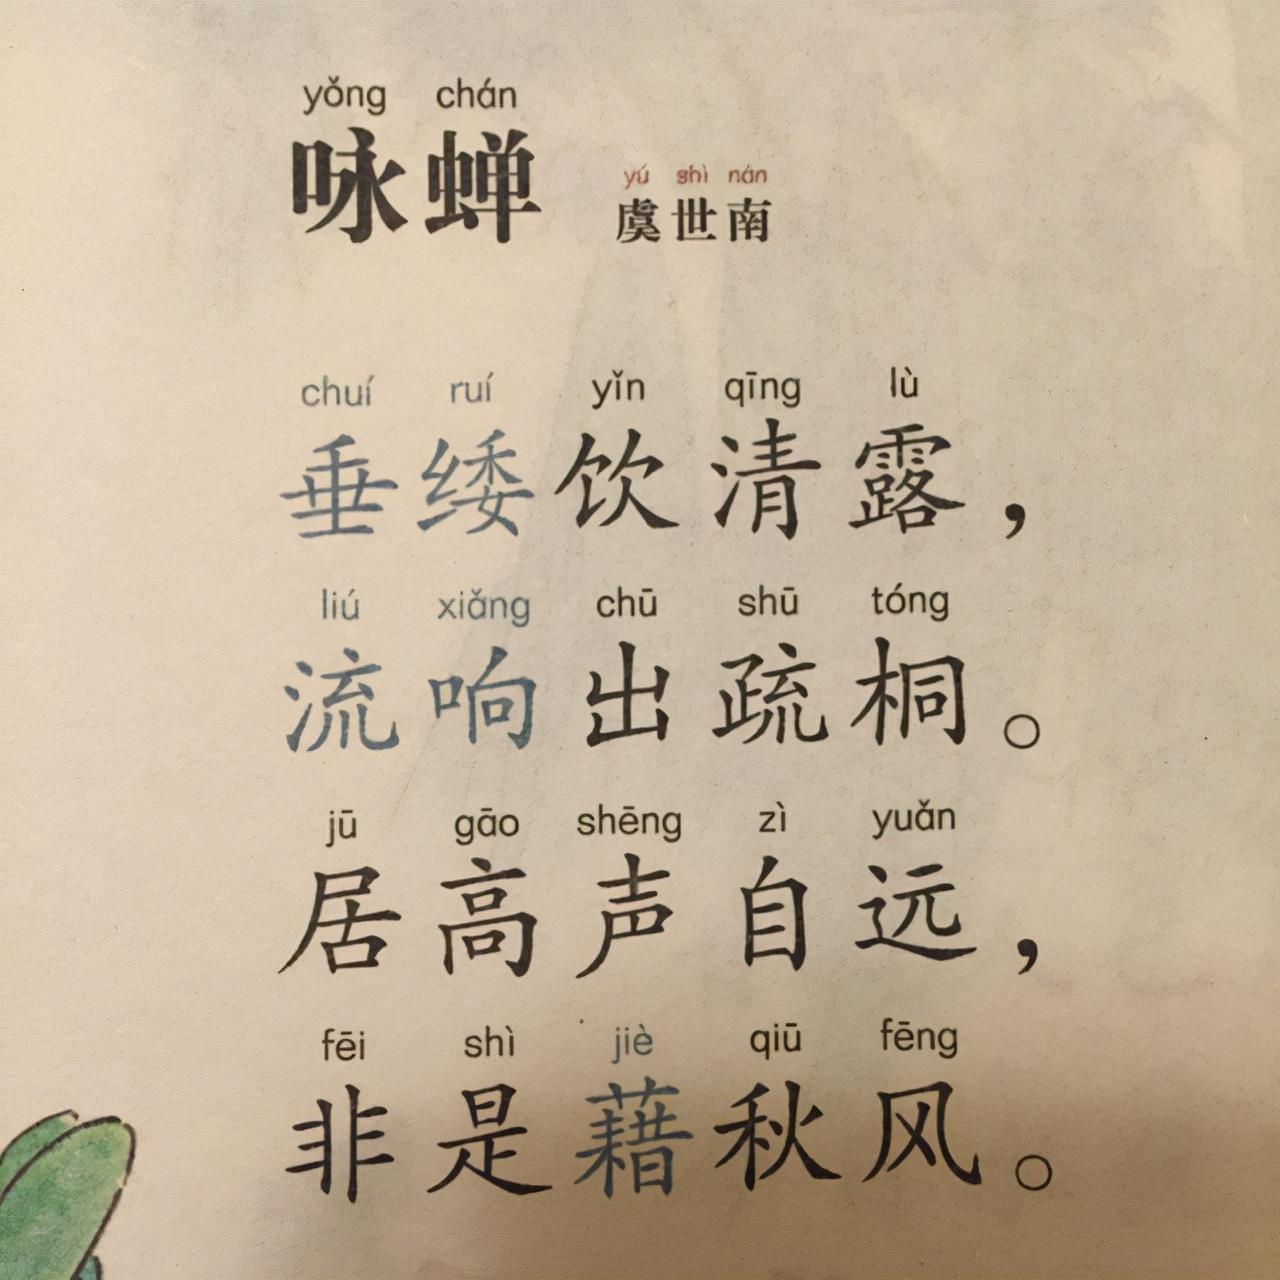 yǒng chán
咏蝉
yú shì nán
虞世南
chuí ruí yǐn qīng lù
垂緌饮清露，
liú xiǎng chū shū tóng
流响出疏桐。
jū gāo shēng zì yuǎn
居高声自远，
fēi shì jiè qiū fēng
非是藉秋风。